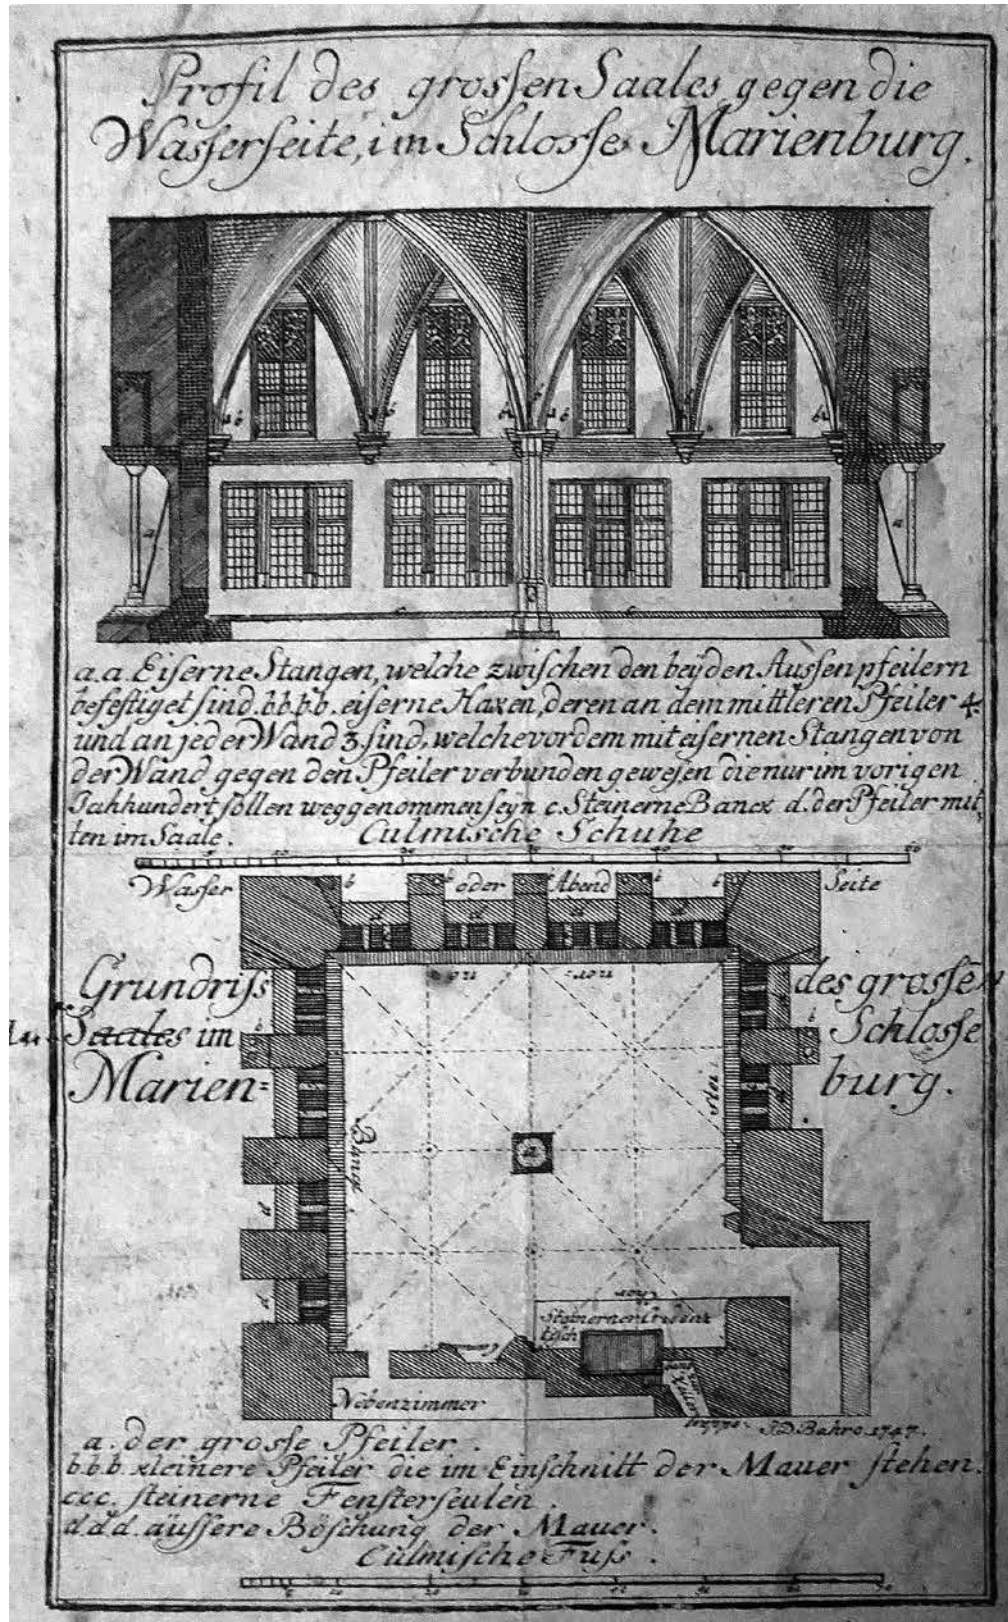 Profil des grossen Saales gegen die
Wasserseite, im Schlosse Marienburg.
a.a. Eiserne Stangen, welche zwischen den beyden Aussenpfeilern
befestiget sind. b.b.b.b. eiserne Haxen, deren an dem mittleren Pfeiler 4.
und an jeder Wand 3. sind, welche vordem mit eisernen Stangen von
der Wand gegen den Pfeiler verbunden gewesen die nur im vorigen
Jahhundert sollen weggenommen seyn c. Steinerne Banck d. der Pfeiler mit
ten im Saale.
Culmische Schuhe
Wasser oder Abend Seite
Grundriss des grossen
Saales im Schlosse
Marien= burg.
Steinerner Credenz
tisch
Camin
Nebenzimmer
J.D. Bahro. 1747.
a. der grosse Pfeiler.
b.b.b. kleinere Pfeiler die im Einschnitt der Mauer stehen.
c.c.c. steinerne Fensterseulen.
d.d.d. äussere Böschung der Mauer.
Culmische Fuss.